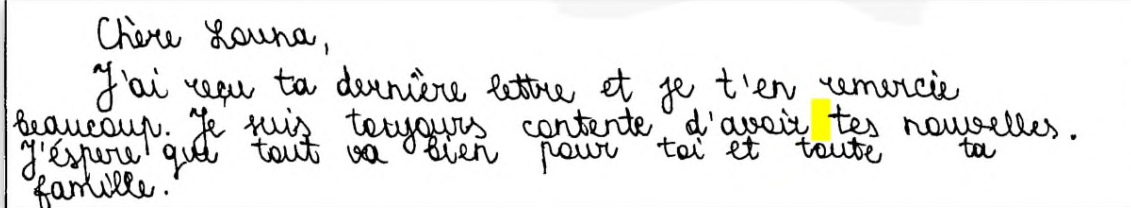 Chère Louna,
J'ai reçu ta dernière lettre et je t'en remercie
beaucoup. Je suis toujours contente d'avoir tes nouvelles.
J'éspere que tout va bien pour toi et toute ta
famille.